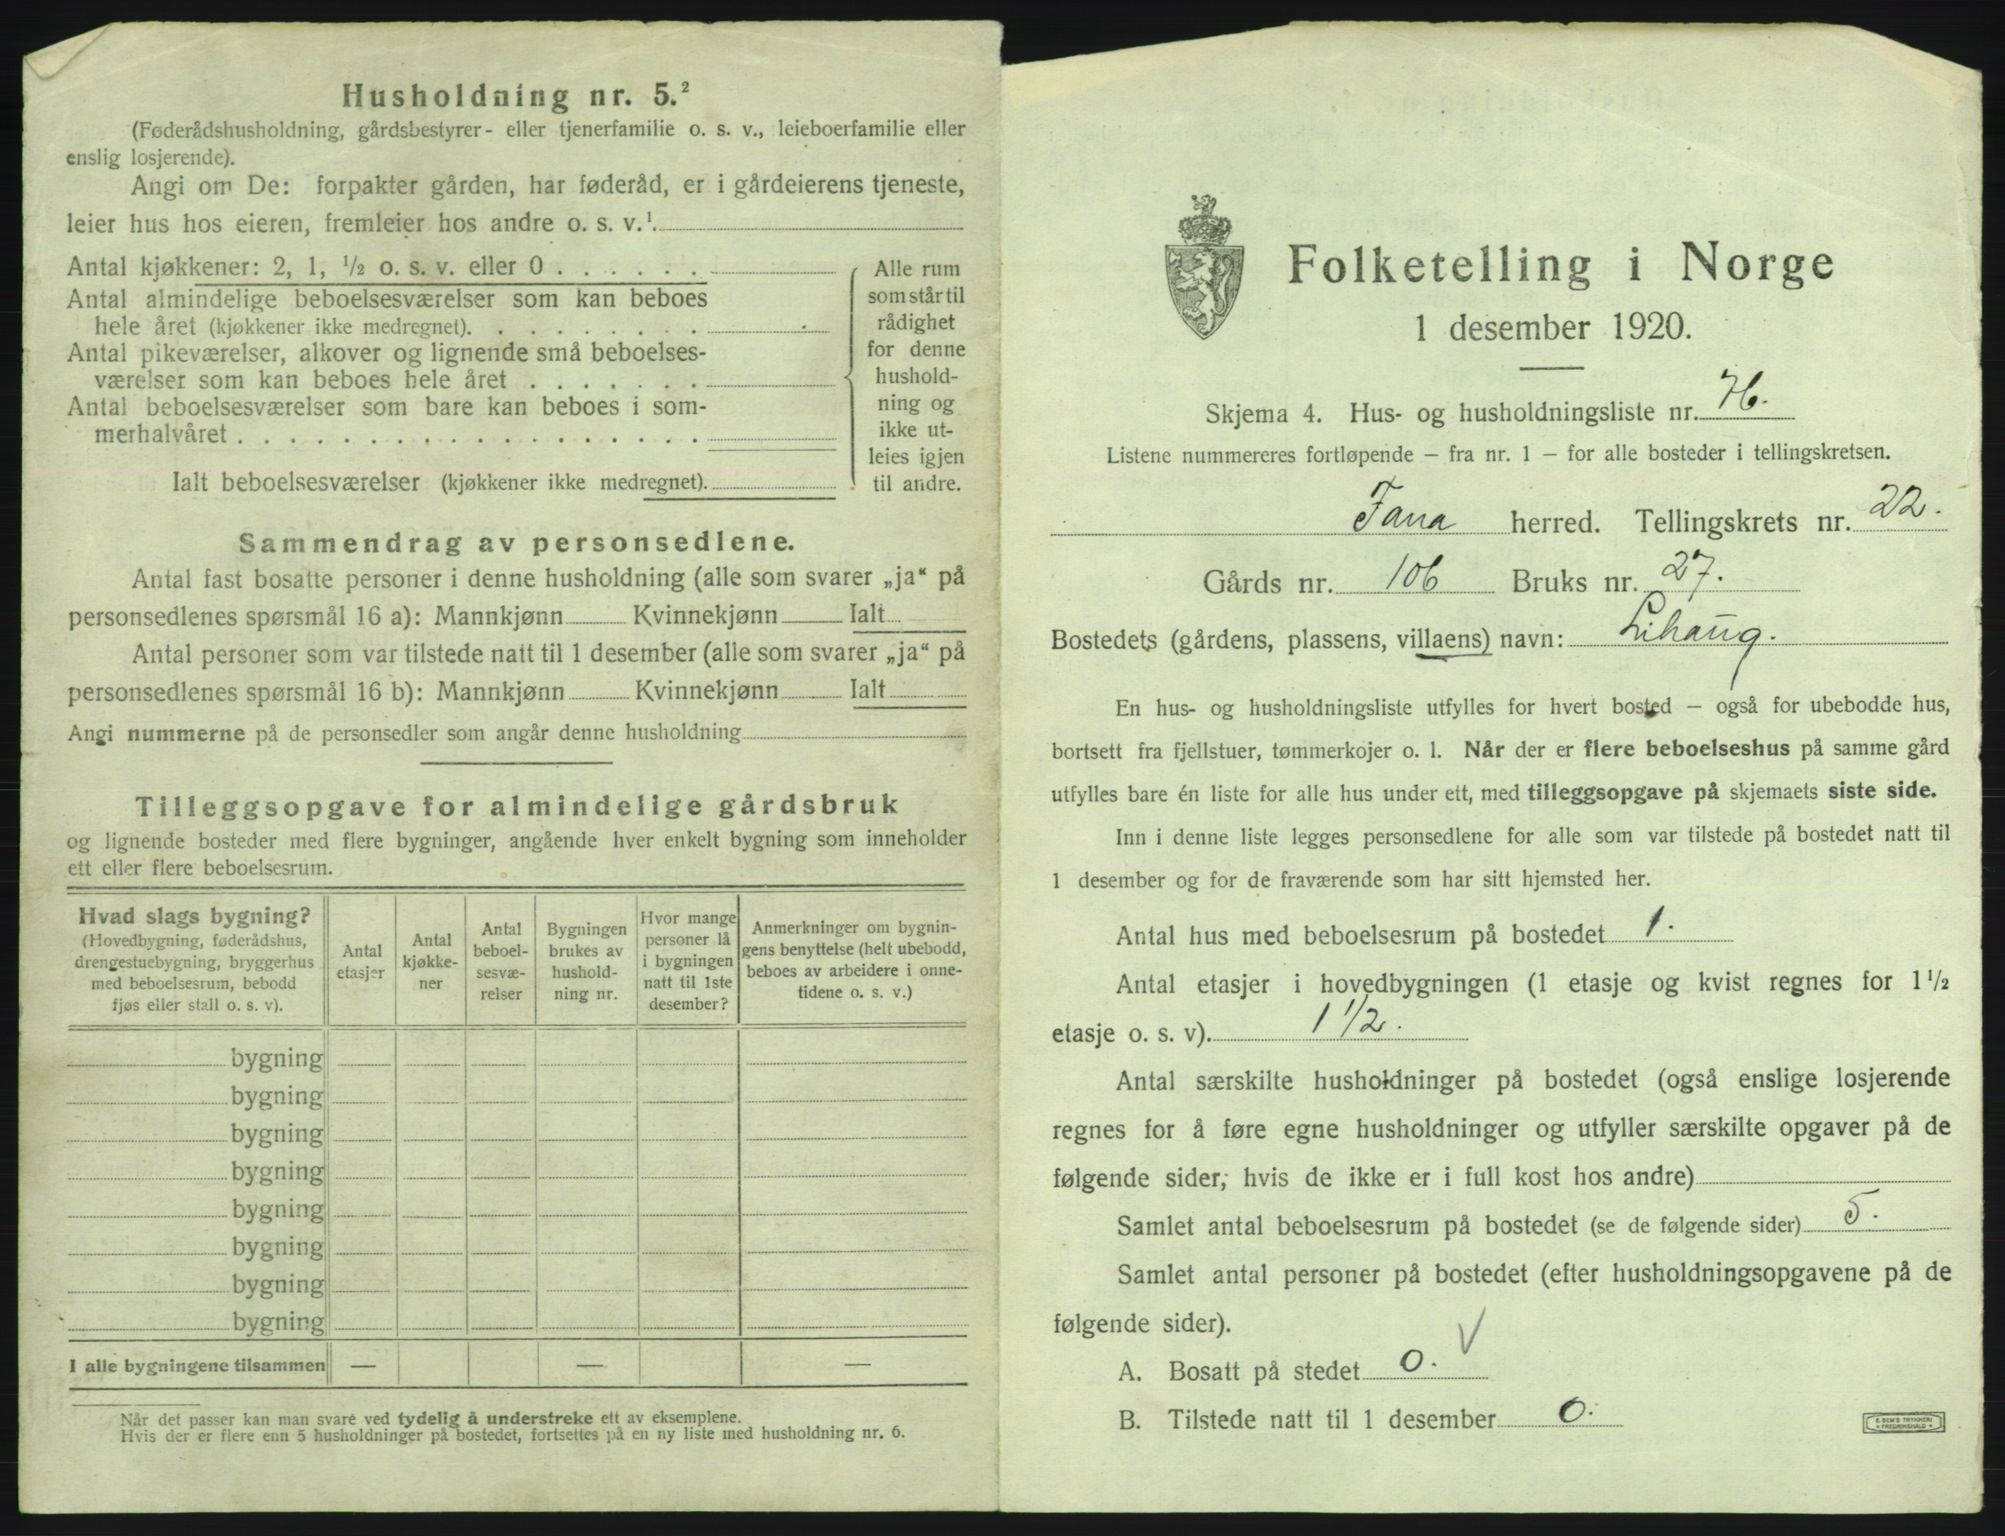 Husholdning nr. 5.²
(Føderådshusholdning, gårdsbestyrer- eller tjenerfamilie o. s. v., leieboerfamilie eller
enslig losjerende).
Angi om De: forpakter gården, har føderåd, er i gårdeierens tjeneste,
leier hus hos eieren, fremleier hos andre o. s. v.¹
Antal kjøkkener: 2, 1, ½ o. s. v. eller 0 . . . . . .
Antal almindelige beboelsesværelser som kan beboes
hele året (kjøkkener ikke medregnet). . . . . . . . .
Antal pikeværelser, alkover og lignende små beboelses-
værelser som kan beboes hele året . . . . . . .
Antal beboelsesværelser som bare kan beboes i som-
merhalvåret . . . . . . . . . . . . . . . . . .
Ialt beboelsesværelser (kjøkkener ikke medregnet).
Alle rum
som står til
rådighet
for denne
hushold-
ning og
ikke ut-
leies igjen
til andre.
Sammendrag av personsedlene.
Antal fast bosatte personer i denne husholdning (alle som svarer „ja“ på
personsedlenes spørsmål 16 a): Mannkjønn Kvinnekjønn Ialt
Antal personer som var tilstede natt til 1 desember (alle som svarer „ja“ på
personsedlenes spørsmål 16 b): Mannkjønn Kvinnekjønn Ialt
Angi nummerne på de personsedler som angår denne husholdning
Tilleggsopgave for almindelige gårdsbruk
og lignende bosteder med flere bygninger, angående hver enkelt bygning som inneholder
ett eller flere beboelsesrum.
Hvad slags bygning?
(Hovedbygning, føderådshus,
drengestuebygning, bryggerhus
med beboelsesrum, bebodd
fjøs eller stall o. s. v).
Antal
etasjer
Antal
kjøkke-
ner
Antal
beboel-
sesvæ-
relser
Bygningen
brukes av
hushold-
ning nr.
Hvor mange
personer lå
i bygningen
natt til 1ste
desember?
Anmerkninger om bygnin-
gens benyttelse (helt ubebodd,
beboes av arbeidere i onne-
tidene o. s. v.)
bygning
bygning
bygning
bygning
bygning
bygning
bygning
bygning
I alle bygningene tilsammen — — —
Når det passer kan man svare ved tydelig å understreke ett av eksemplene.
Hvis der er flere enn 5 husholdninger på bostedet, fortsettes på en ny liste med husholdning nr. 6.
Folketelling i Norge
1 desember 1920.
Skjema 4. Hus- og husholdningsliste nr. 76.
Listene nummereres fortløpende – fra nr. 1 – for alle bosteder i tellingskretsen.
Fana herred. Tellingskrets nr. 22.
Gårds nr. 106 Bruks nr. 27.
Bostedets (gårdens, plassens, villaens) navn: Lihaug.
En hus- og husholdningsliste utfylles for hvert bosted – også for ubebodde hus,
bortsett fra fjellstuer, tømmerkojer o. l. Når der er flere beboelseshus på samme gård
utfylles bare én liste for alle hus under ett, med tilleggsopgave på skjemaets siste side.
Inn i denne liste legges personsedlene for alle som var tilstede på bostedet natt til
1 desember og for de fraværende som har sitt hjemsted her.
Antal hus med beboelsesrum på bostedet 1.
Antal etasjer i hovedbygningen (1 etasje og kvist regnes for 1½
etasje o. s. v). 1 1/2.
Antal særskilte husholdninger på bostedet (også enslige losjerende
regnes for å føre egne husholdninger og utfyller særskilte opgaver på de
følgende sider, hvis de ikke er i full kost hos andre)
Samlet antal beboelsesrum på bostedet (se de følgende sider) 5.
Samlet antal personer på bostedet (efter husholdningsopgavene på de
følgende sider).
A. Bosatt på stedet 0. V
B. Tilstede natt til 1 desember 0.
E. SEM'S TRYKKERI
FREDRIKSHALD